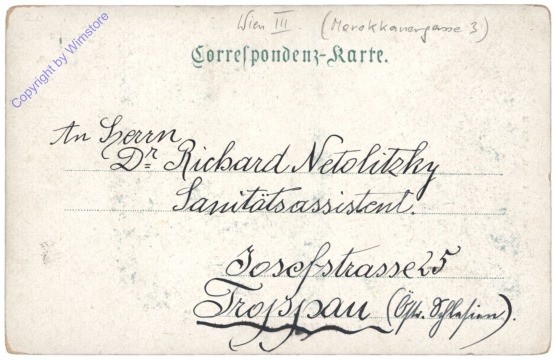 Wien III. (Marokkanergasse 3)
Correspondenz-Karte.
Copyright by Wimstore
An Herrn
Dr. Richard Netolitzky
Sanitätsassistent.
Josefstrasse 25
Troppau (Östr. Schlesien).